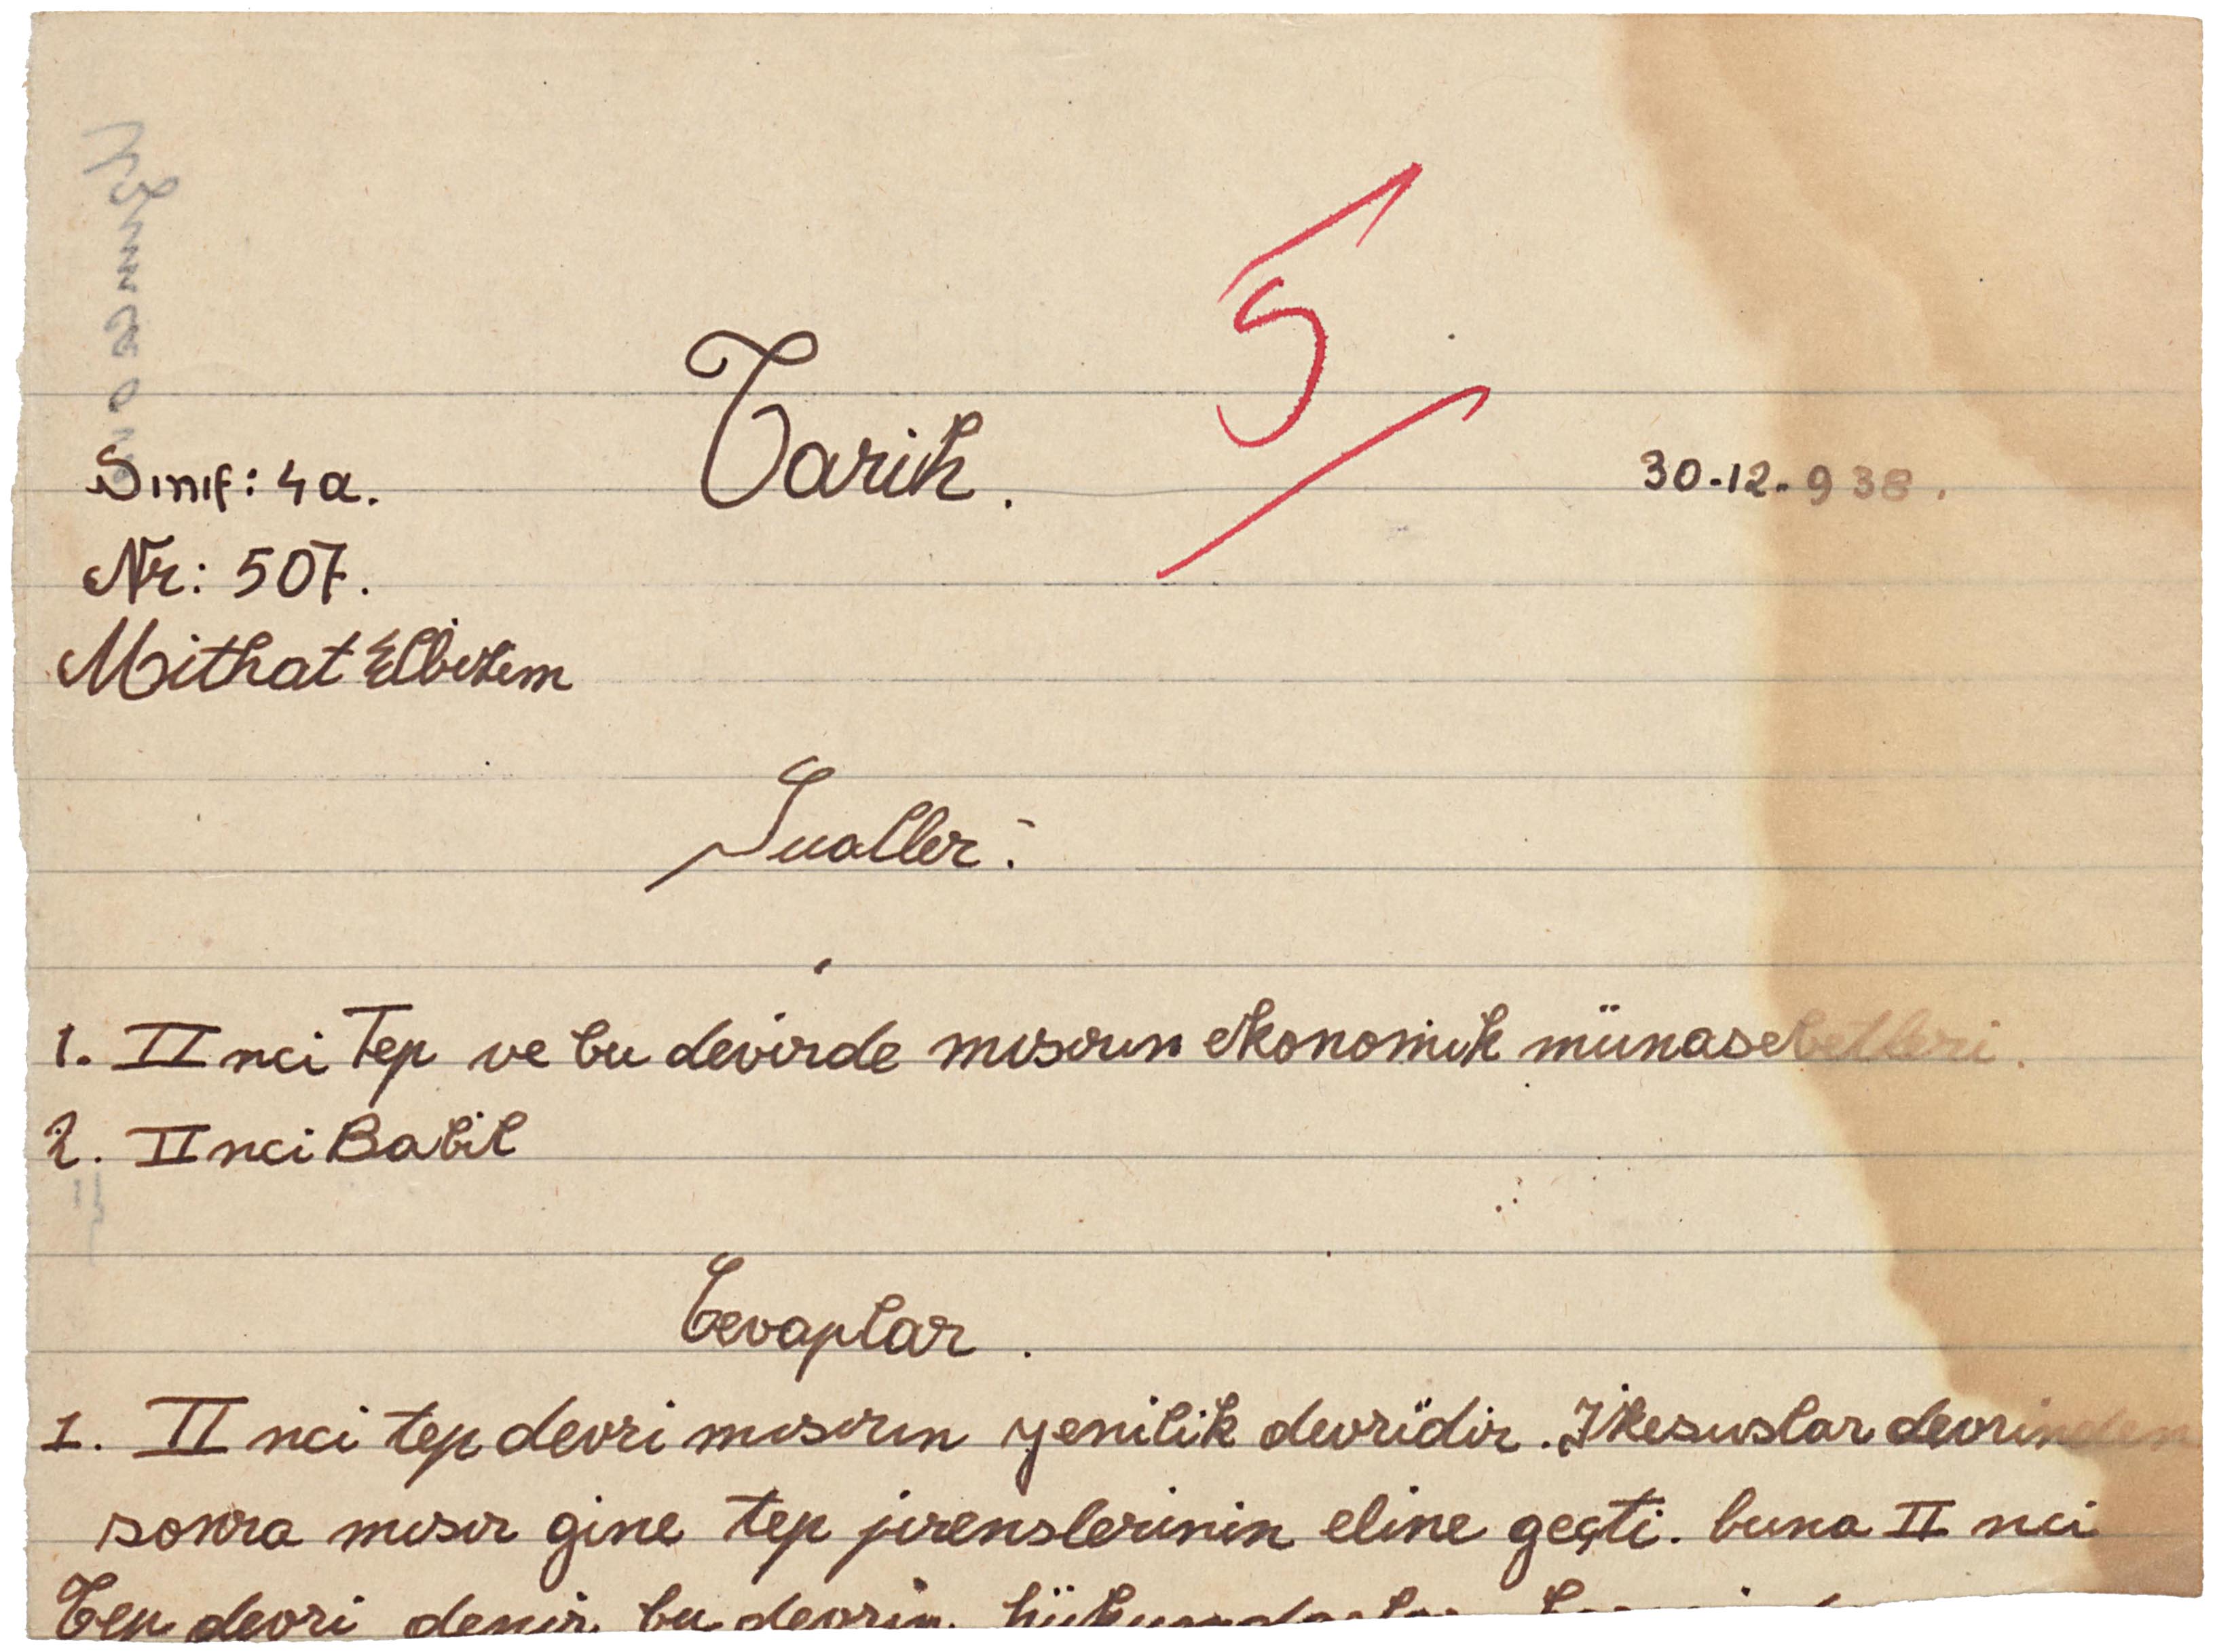 5
Tarih.
30-12-938.
Sınıf: 4a.
Nr: 507.
Mithat Elbirlem
Sualler:
1. II nci Tep ve bu devirde mısırın ekonomik münasebetleri.
2. II nci Babil
Cevaplar.
1. II nci tep devri mısırın yenilik devridir. İkesuslar devrinden
sonra mısır gine tep pirenslerinin eline geçti. buna II nci
Tep devri denir. bu devrin